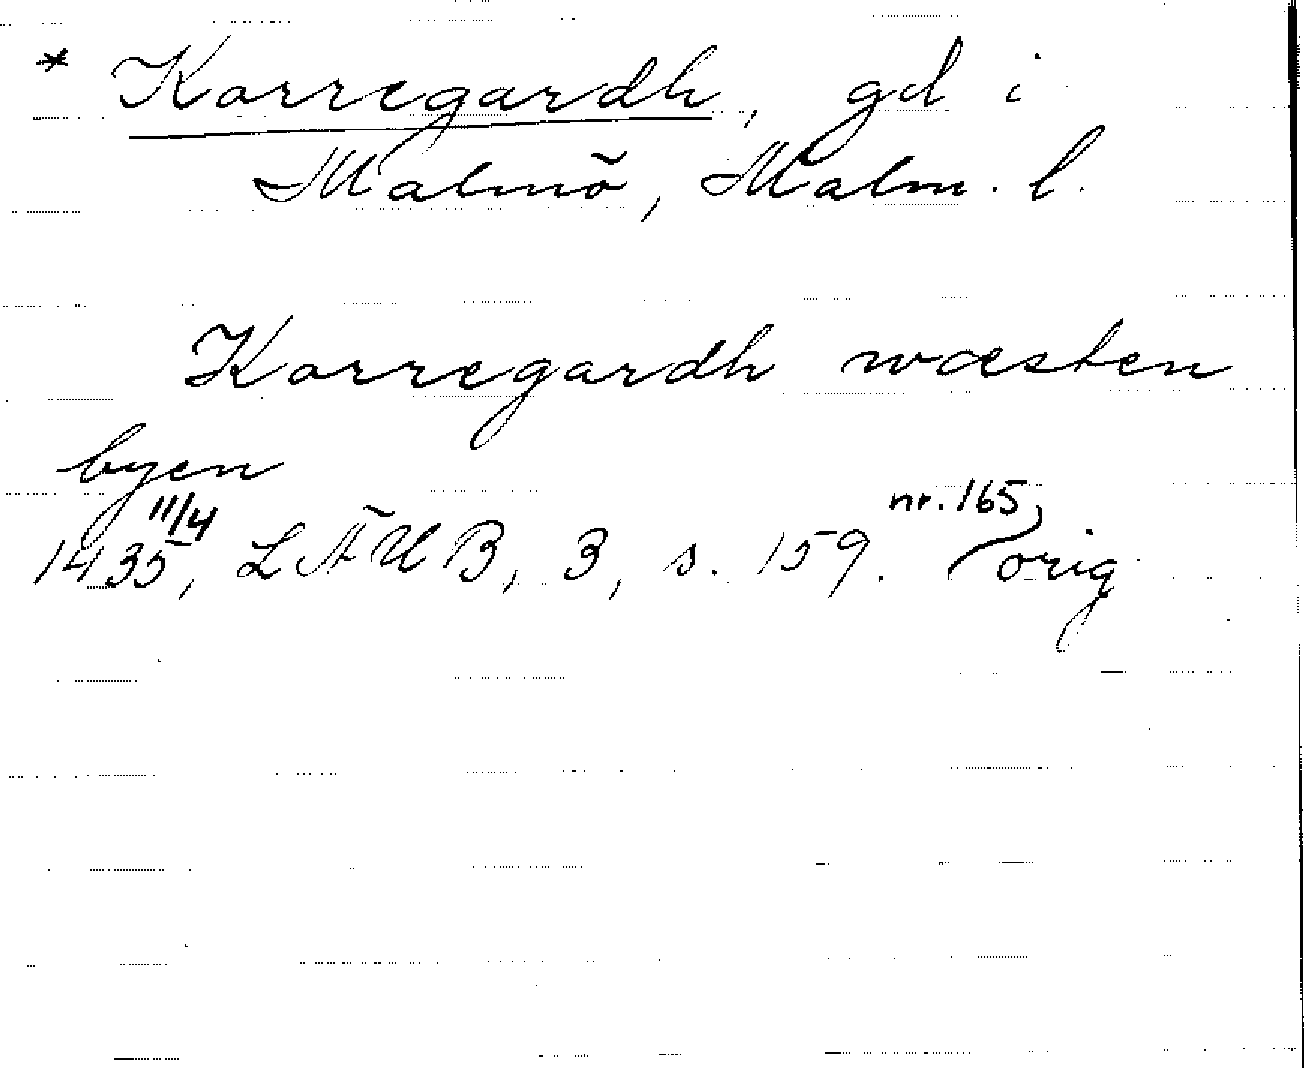 * Korregardh, gd i
Malmö, Malm. l.
Korregardh wæsten
byen
1435 11/4, LÄUB, 3, s. 159. nr. 165, orig